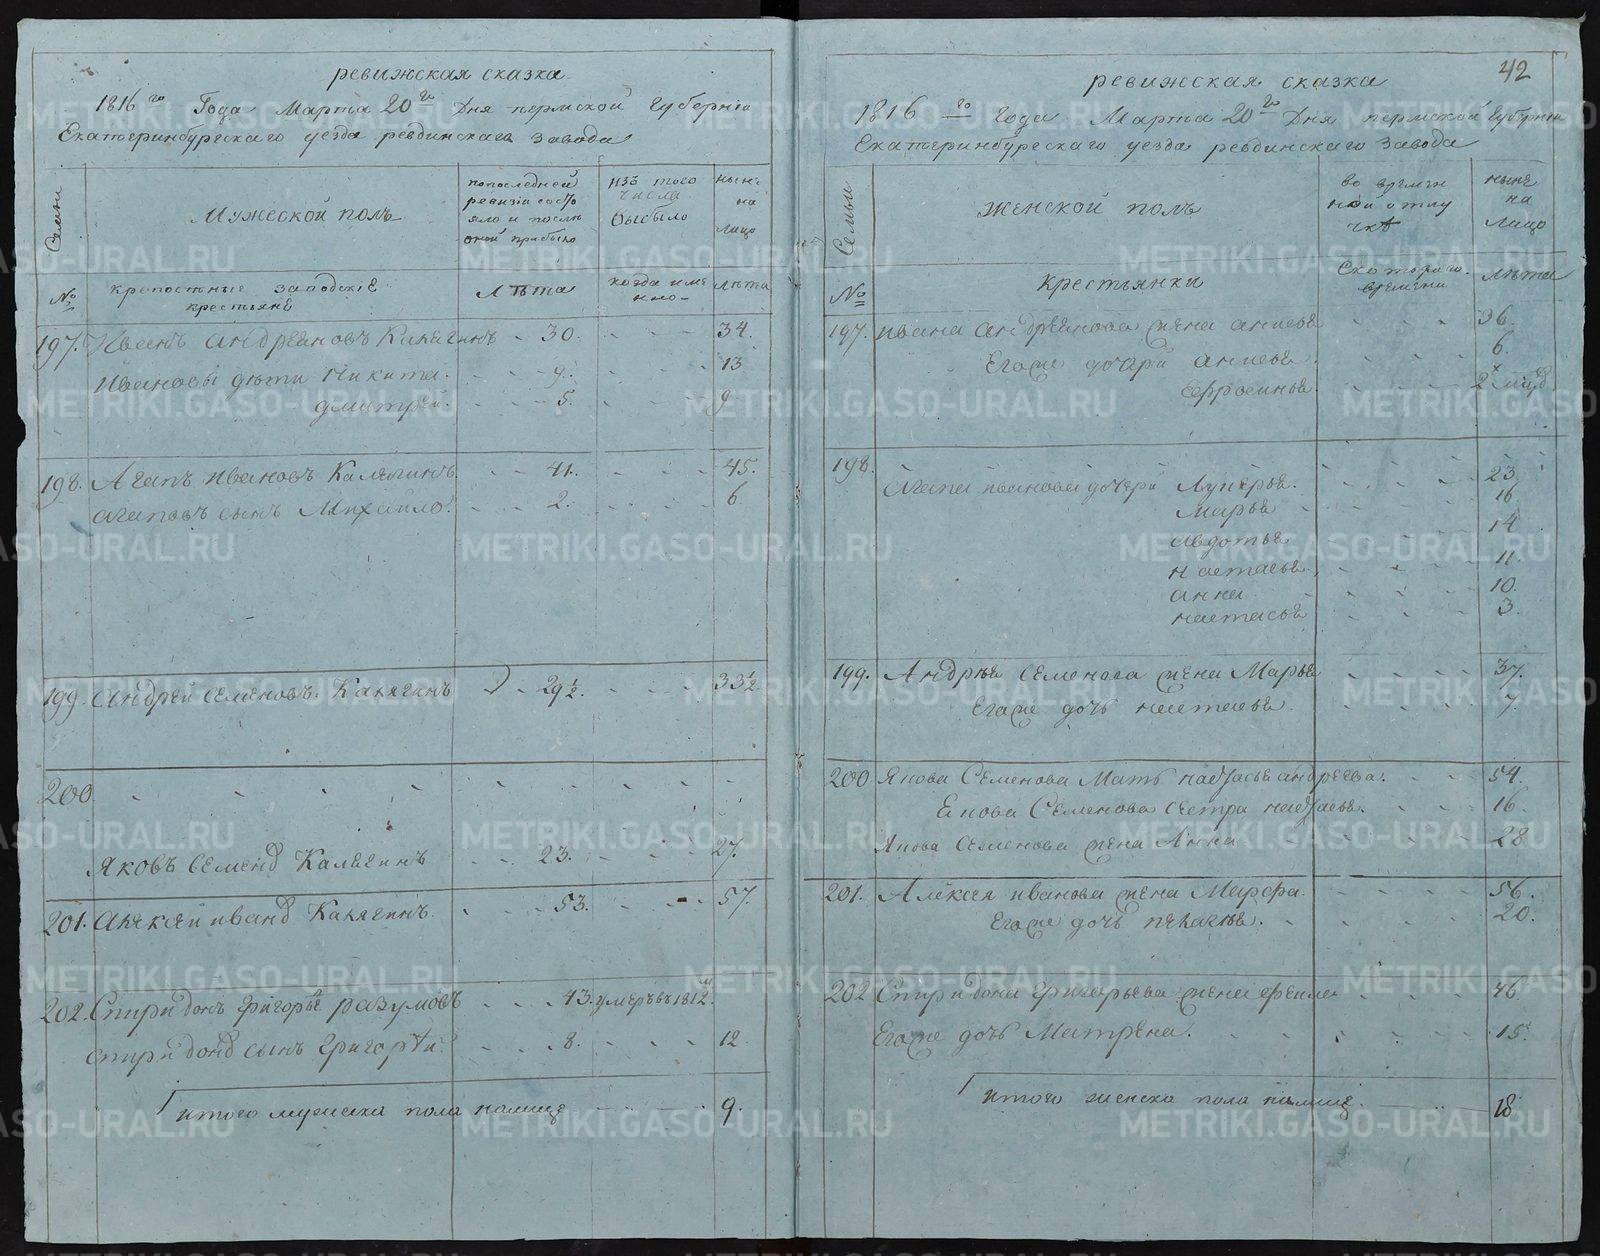 ревижская сказка
1816го Года Марта 20го Дня пермской Губерніи
Екатеринбурескаго уезда ревдинскаго завода
Семьи
Мужеской полъ
попоследней ревизіи состояло и после оной прибыло
изъ того числа выбыло
ныне на лицо
№
крепостные заводскіе крестьяне
Лѣта
когда именно
лѣта
197. Иванъ андреяновъ Калягинъ - 30. - - - 34.
Ивановы дѣти Никита. - - 9. - - - 13
дмитреи. - - 5. - - - 9
198. Агапъ ивановъ Калягинъ - - 41. - - - 45.
агаповъ сынъ Михайло. - - 2. - - - 6
199. Андрей Семеновъ Калягинъ - 29½. - - - 33½
200
Яковъ Семенов Калягинъ - - 23. - - - 27.
201. Алексеи иванов Калягинъ. - - 53. - - - 57.
202. Спиридонъ григорье разумовъ - - 43. умеръ въ 1812м.
спиридонов сынъ Григорѣи - - 8. - - - 12
итого мужеска пола налице - - 9.
42
ревижская сказка
1816го Года Марта 20го Дня пермской Губерніи
Екатеринбурескаго уезда ревдинскаго завода
Семьи
Женской полъ
во временной отлучкѣ
ныне на лицо
№
крестьянки
скотораго времени
лѣта
197. ивана андреянова жена анисья - - - 36.
Егоже дочери анисья. - - - 6.
ефросинья - - - 2х мцов
198.
агапа иванова дочери Лукерья. - - - 23.
Марья - - - 16
авдотья - - - 14
настасья. - - - 11.
анна - - - 10.
настасья - - - 3.
199. Андрѣя Семенова жена Марья - - - 37.
Егоже дочь настасья. - - - 7.
200 Якова Семенова Мать настасья андреева. - - 54.
Якова Семенова сестра настасья. - - - 16.
Якова семенова жена Анна - - - 28
201. Алексея иванова жена Марфа. - - - 56.
Егоже дочь пелагея. - - - 20.
202 Спиридона григорьева жена - - - 46
Егоже дочь Матрена. - - - 15.
итого женска пола налице. - - 18
METRIKI.GASO-URAL.RU